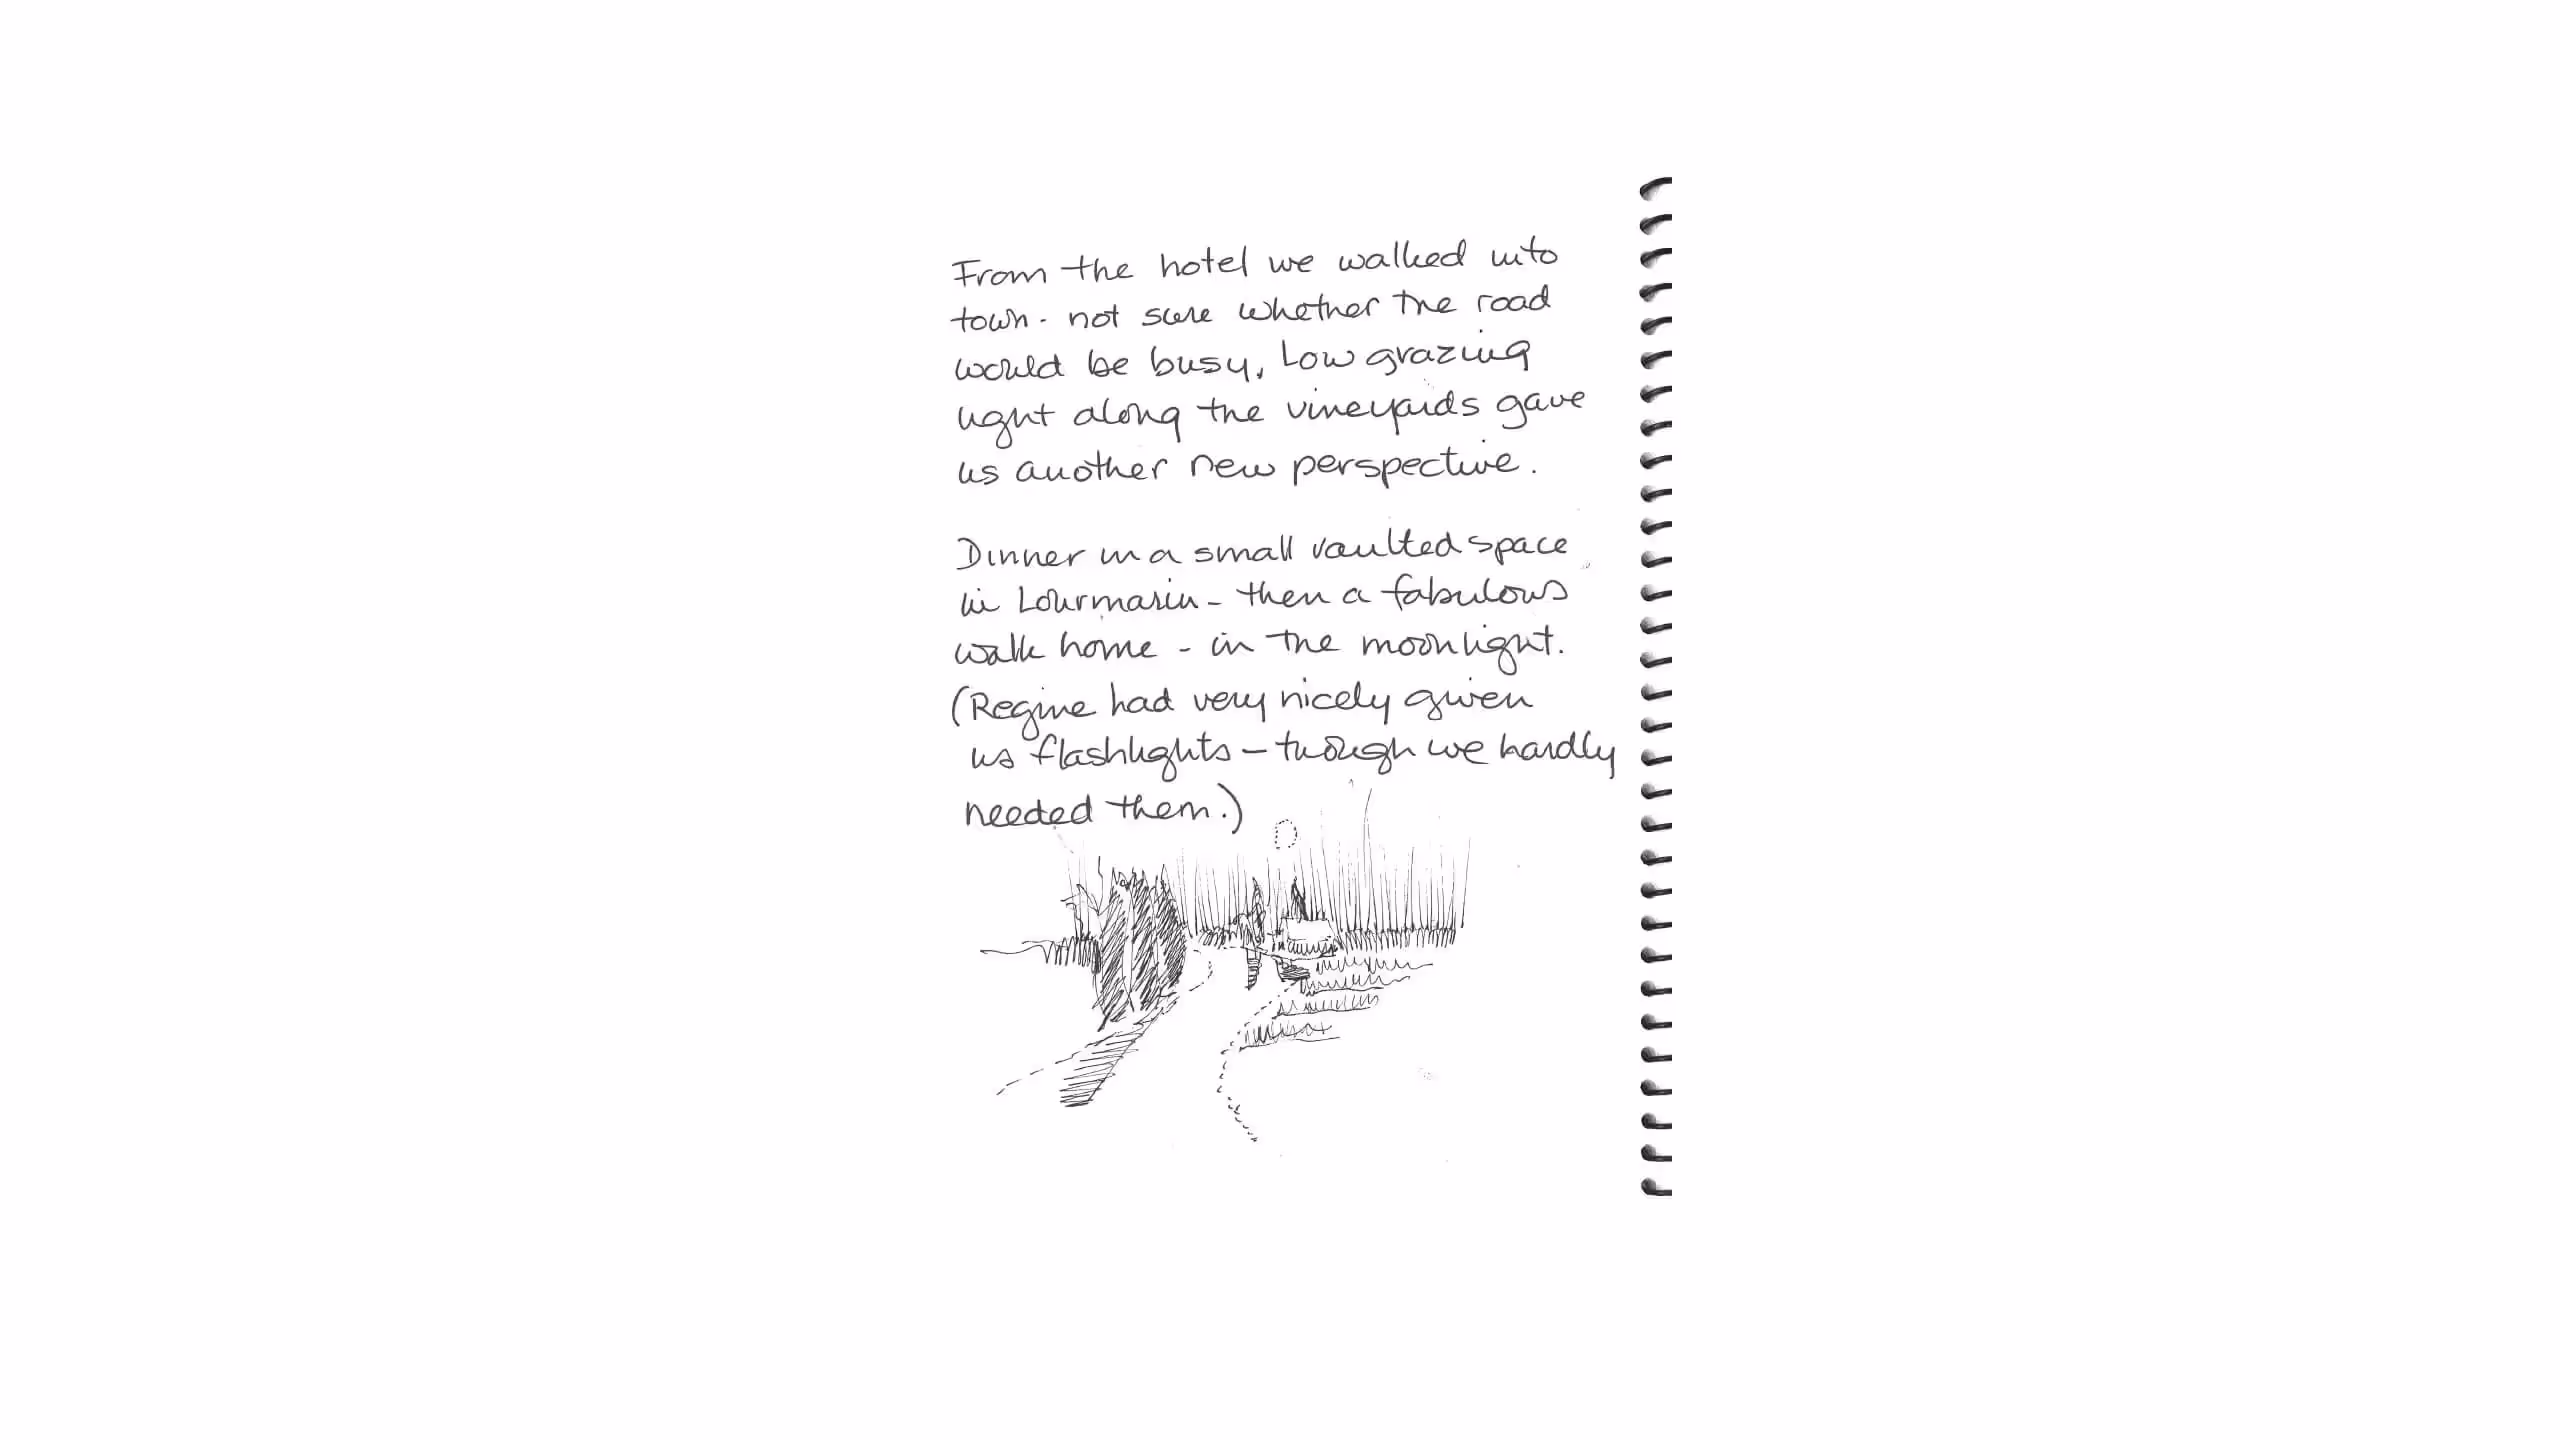 From the hotel we walked into
town - not sure whether the road
would be busy. Low grazing
light along the vineyards gave
us another new perspective.
Dinner in a small vaulted space
in Lourmarin - then a fabulous
walk home - in the moonlight.
(Regine had very nicely given
us flashlights - though we hardly
needed them.)